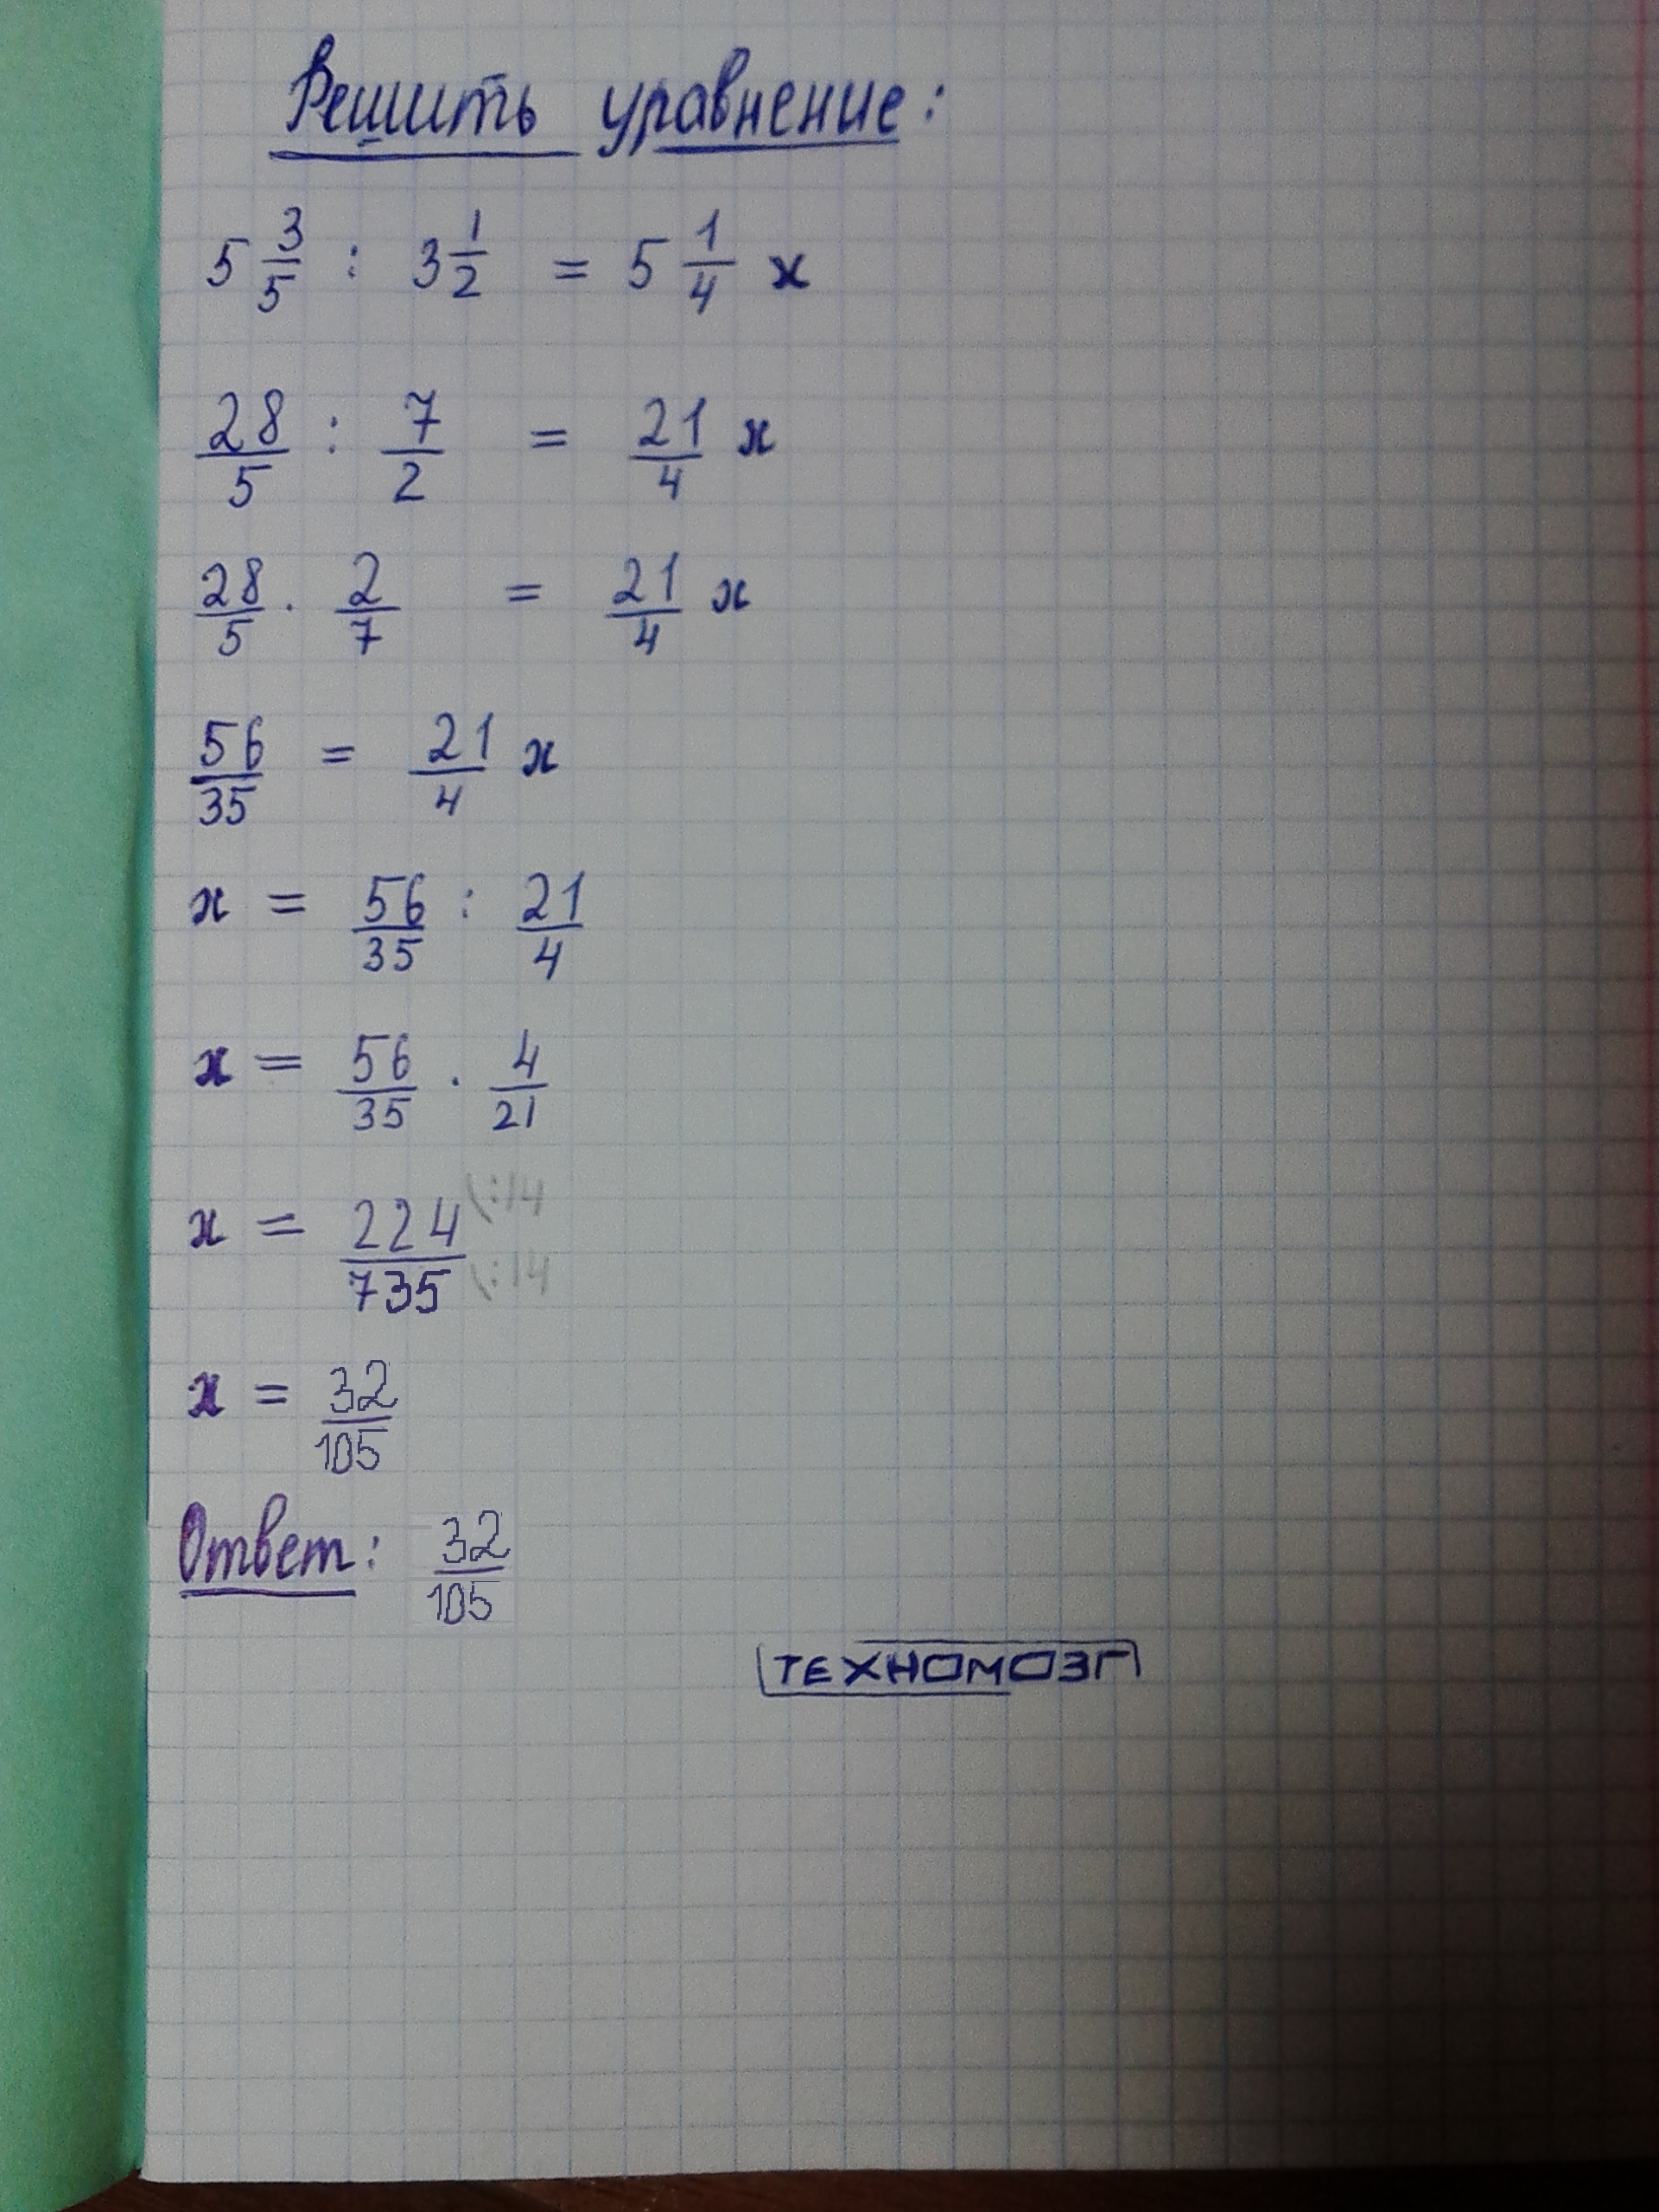 Решить уравнение:
5 3/5 : 3 1/2 = 5 1/4 x
28/5 : 7/2 = 21/4 x
28/5 · 2/7 = 21/4 x
56/35 = 21/4 x
x = 56/35 : 21/4
x = 56/35 · 4/21
x = 224\:14 / 735\:14
x = 32/105
Ответ: 32/105
ТЕХНОМОЗГ